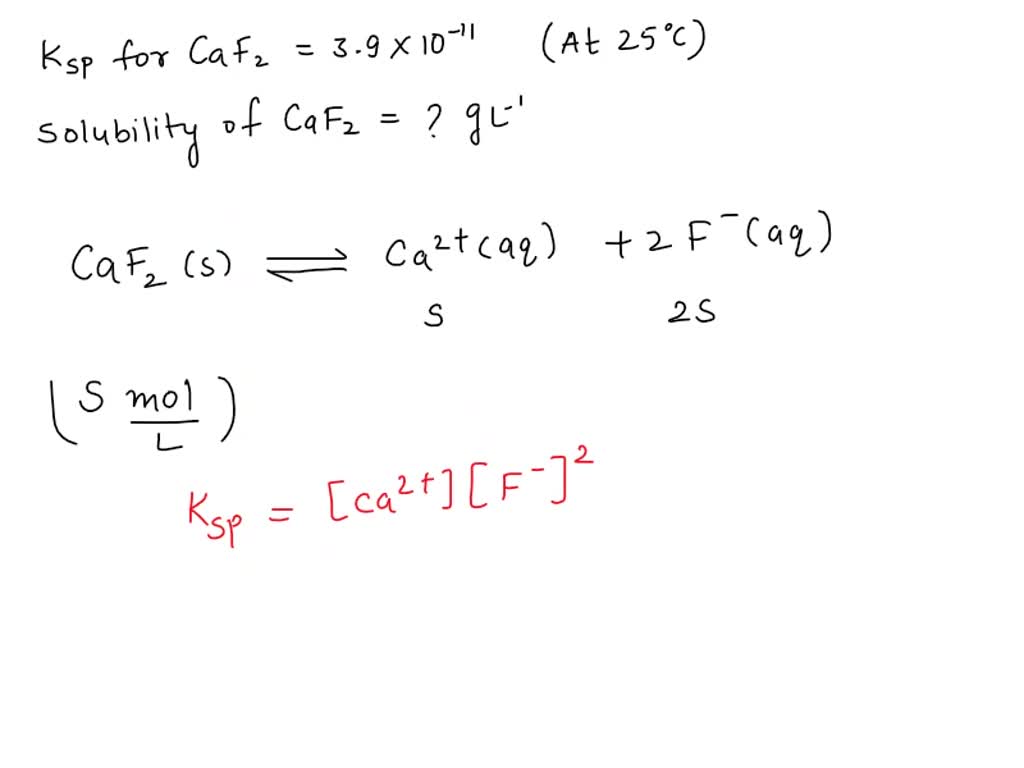 Ksp for CaF₂ = 3.9 × 10⁻¹¹ (At 25°C)
Solubility of CaF₂ = ? gL⁻¹
CaF₂ (s) ⇌ Ca²⁺(aq) + 2 F⁻(aq)
S 2S
(S mol/L)
Ksp = [Ca²⁺] [F⁻]²